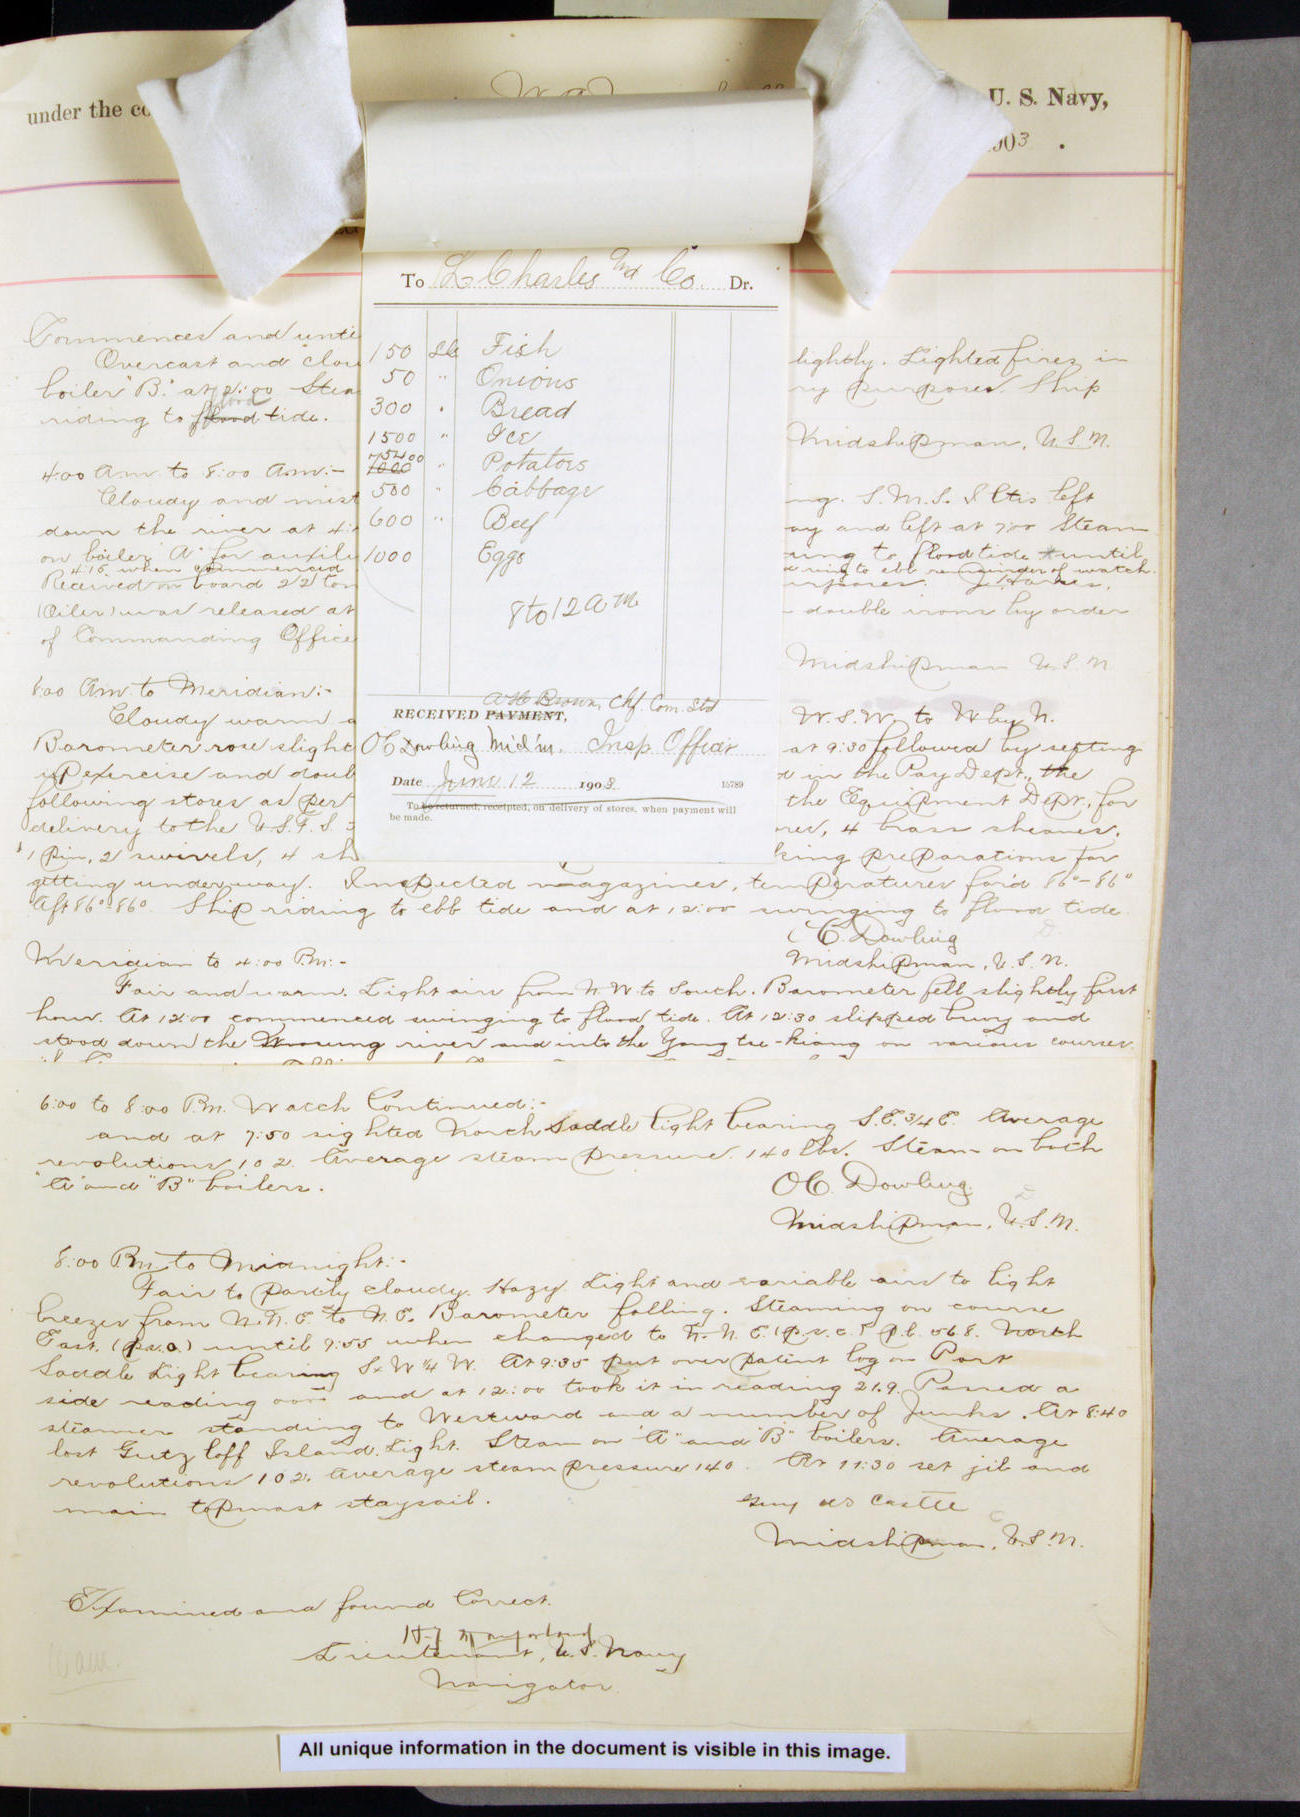 under the co
U. S. Navy,
1903 .
To L Charles and Co. Dr.
150 Lb Fish
50 " Onions
300 " Bread
1500 " Ice
75400
1000 " Potatoes
500 " Cabbage
600 " Beef
1000 Eggs
8 to 12 a m
A H Brown, Chf. Com. Std
RECEIVED PAYMENT,
O C Dowling Mid'n. Insp. Officer
Date June 12 1903 15789
To be returned, receipted, on delivery of stores, when payment will
be made.
Commences and until
Overcast and clou lightly. Lighted fires in
boiler "B." at 12:00 Stea ry purposes. Ship
flood
riding to flood tide.
Midshipman, U.S.N.
4:00 A.m. to 8:00 A.m.:-
Cloudy and mist ing. S.M.S. Iltis left
down the river at 4: ay and left at 7:00 Steam
on boiler "A" for auxili ing to flood tide until
4:15 when commenced ing to ebb remainder of watch.
Received on board 22 ton urposes. J. Haines,
(Oiler) was released at double irons by order
of Commanding Office
Midshipman U.S.N.
8:00 Am. to Meridian:-
Cloudy warm a W.S.W. to W by N.
Barometer rose slight at 9:30 followed by setting
up exercise and doub d in the Pay Dept., the
following stores as per the Equipment Dept., for
delivery to the U.S.F.S. res, 4 brass sheaves,
1 pin, 2 swivels, 4 sh king preparations for
getting underway. Inspected magazines, temperatures for'd 86°-86°
Aft 86°-86°. Ship riding to ebb tide and at 12:00 swinging to flood tide.
O C. Dowling
Midshipman, U.S.N.
Meridian to 4:00 P.m:-
Fair and warm. Light airs from N W to South. Barometer fell slightly first
hour. At 12:00 commenced swinging to flood tide. At 12:30 slipped buoy and
stood down the Woosung river and into the Yang tse-kiang on various courses
6:00 to 8:00 P.m. Watch Continued:-
and at 7:50 sighted North Saddle light bearing S.E.3/4E. Average
revolutions 102. Average steam pressure 140 lbs. Steam on both
"A" and "B" boilers.
O C. Dowling.
Midshipman, U.S.N.
8:00 Pm to Midnight:-
Fair to partly cloudy. Hazy. Light and variable airs to light
breezes from N.N.E. to N.E. Barometer falling. Steaming on course
East. (p.s.c.) until 9:35 when changed to N.N.E. (p.s.c.) p.l. 56 8. North
Saddle Light bearing SxW 1/4 W. At 9:35 put over patent log on Port
side reading 00.0 and at 12:00 took it in reading 21.9. Passed a
steamer standing to Westward and a number of Junks. At 8:40
lost Gutzloff Island Light. Steam on "A" and "B" boilers. Average
revolutions 102. Average steam pressure 140. At 11:30 set jib and
main topmast staysail.
Guy W S Castle
Midshipman, U.S.N.
Examined and found Correct.
Lieutenant, U.S. Navy
Navigator.
All unique information in the document is visible in this image.